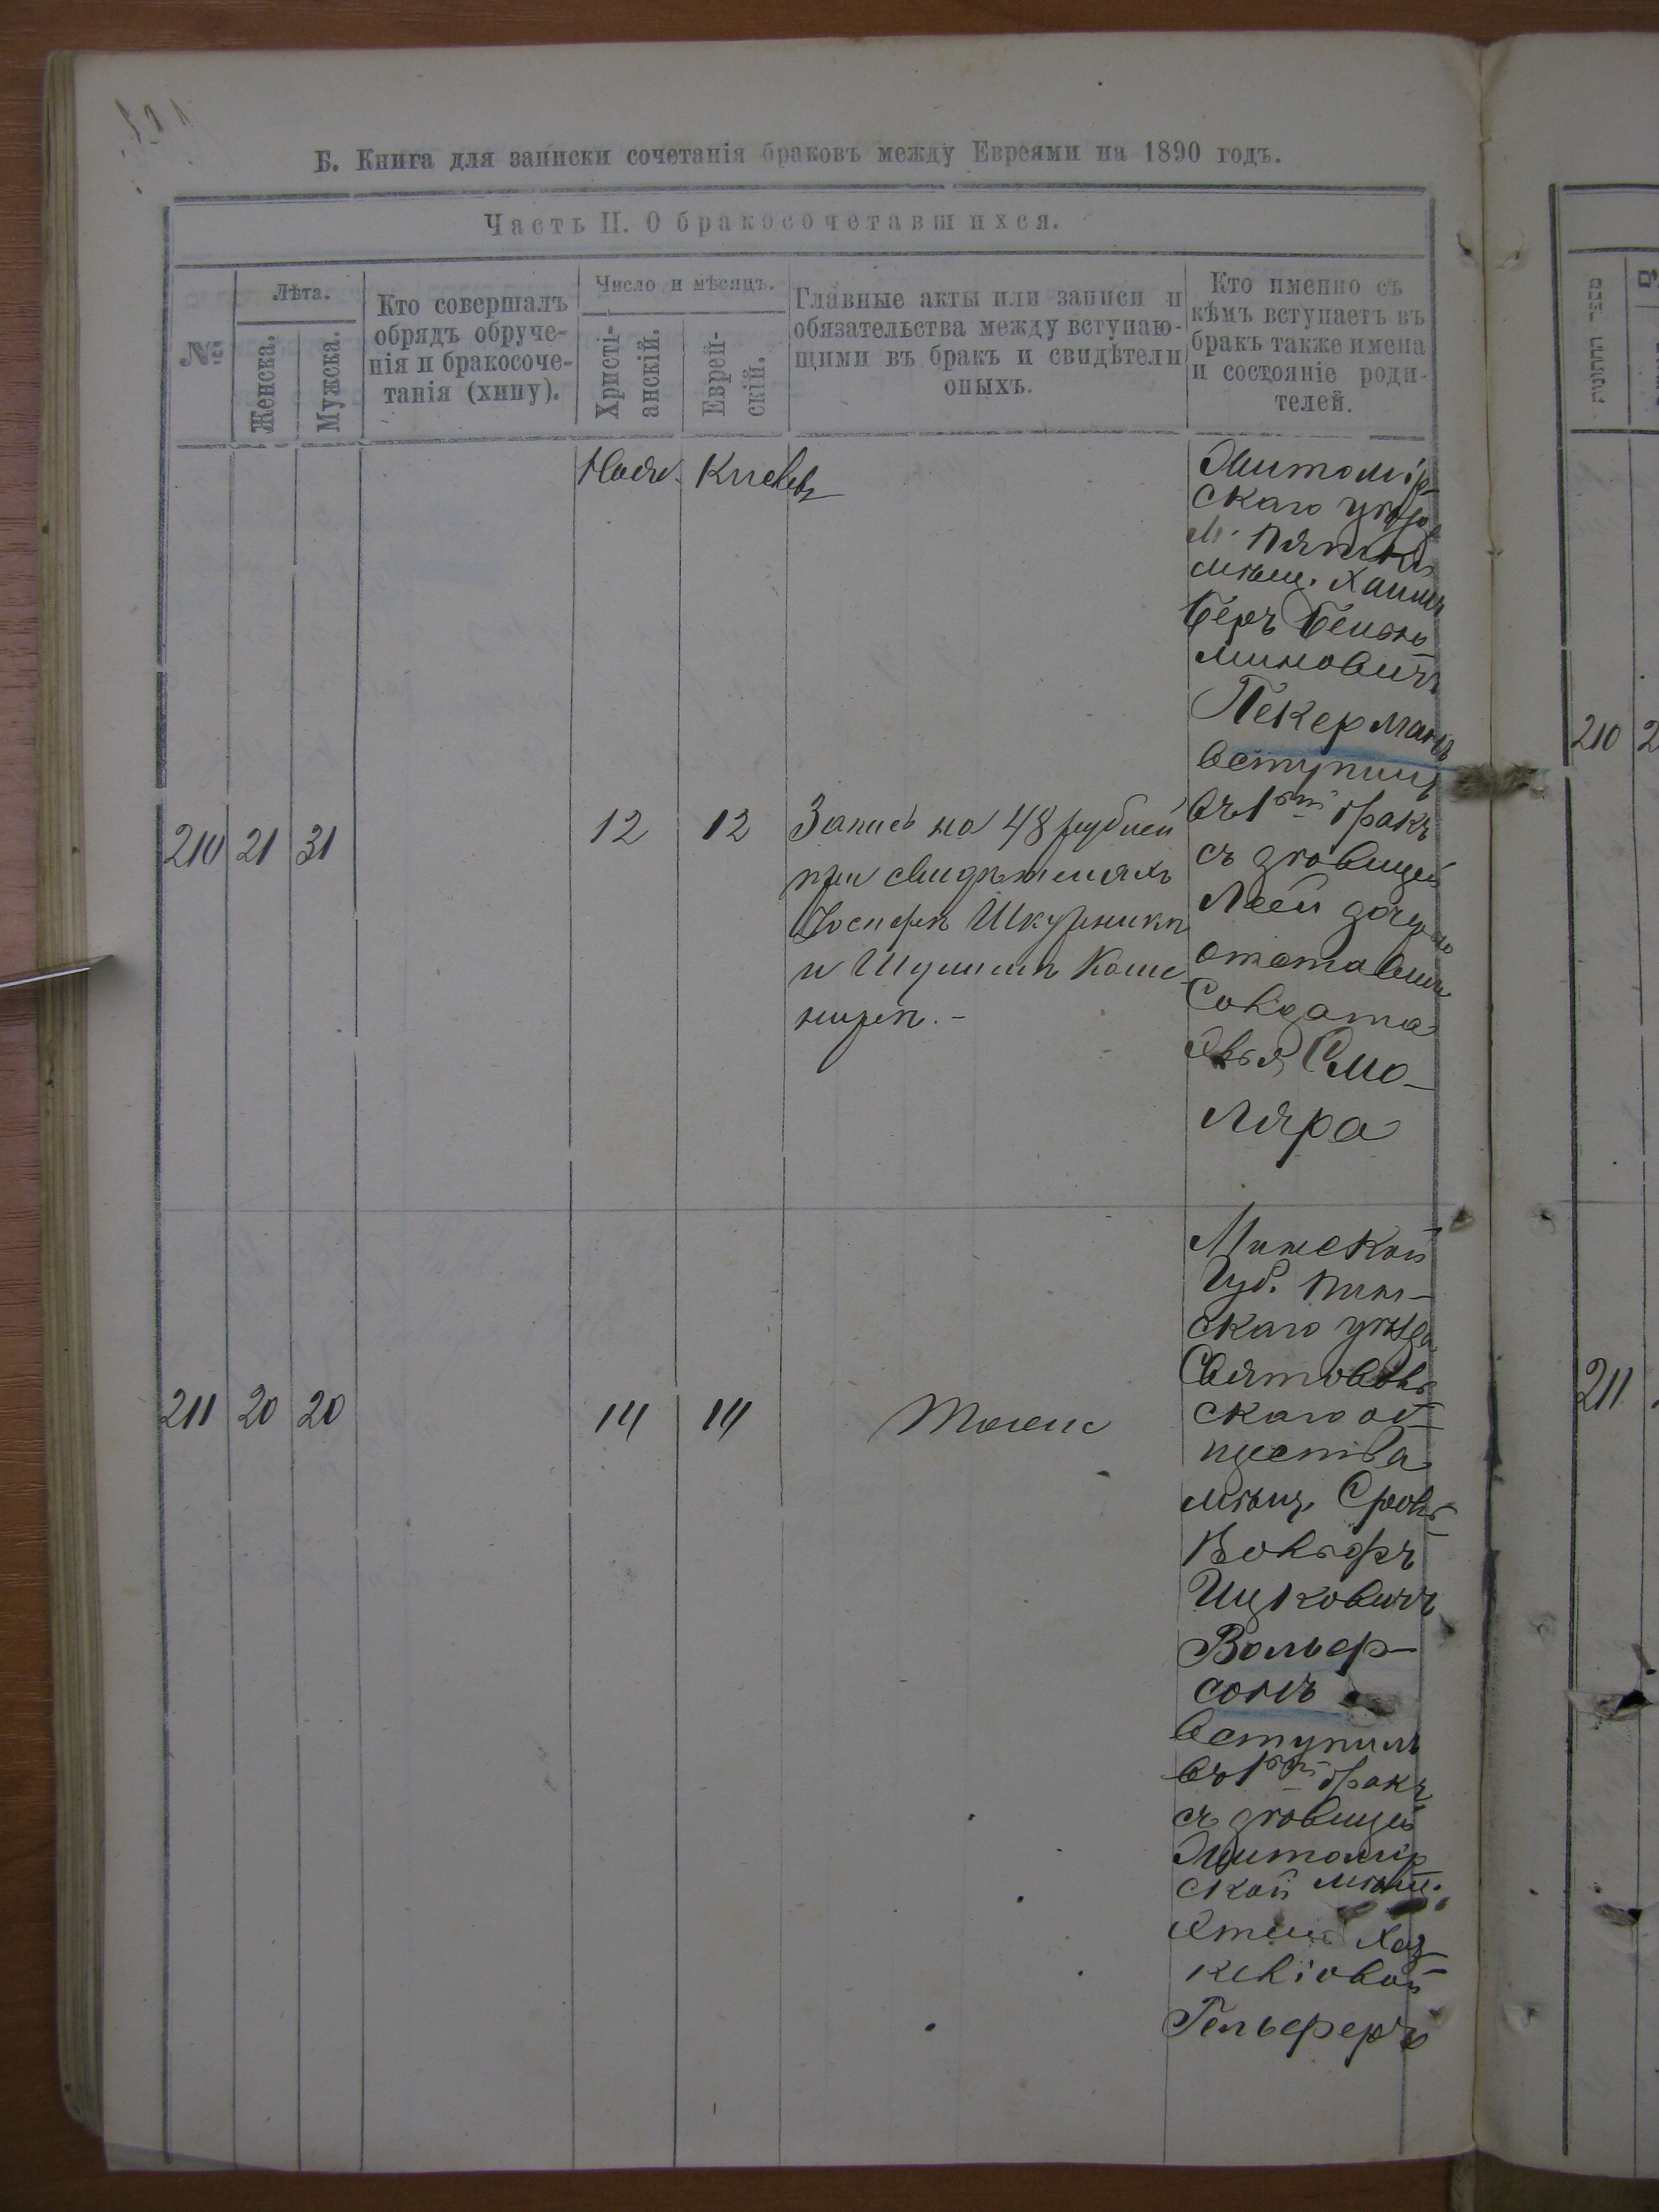 Б. Книга для записки сочетанія браковъ между Евреями на 1890 годъ.
Часть II. О бракосочетавшихся.
№
Лѣта.
Женска.
Мужска.
Кто совершалъ
обрядъ обруче-
нія и бракосоче-
танія (хипу).
Число и мѣсяцъ.
Христі-
анскій.
Еврей-
скій.
Главные акты или записи и
обязательства между вступаю-
щими въ бракъ и свидѣтели
оныхъ.
Кто именно съ
кѣмъ вступаетъ въ
бракъ также имена
и состояніе роди-
телей.
Нояб. Кислевъ
210 21 31
12 12
Запись на 48 рублей
при свидѣтеляхъ
Іосифѣ Шкурникѣ
и Шулимѣ Коше
нирѣ. -
Житомір-
скаго уѣзда
м. Пятки
мѣщ. Хаимъ
Беръ Бенья
миновичъ
Пекерманъ
вступилъ
въ 1ый бракъ
съ дѣвицей
Леей дочерью
отставн
Солдата
Смо-
ляра
211 20 20
14 14
Тоже
Минской
Губ. Пин-
скаго уѣзда
Святоволь
скаго об-
щества
мѣщ. Сроль-
Вольфъ
Ицковичъ
Вольф-
сонъ
вступилъ
въ 1ый бракъ
съ дѣвицей
Житомір
ской мѣщ.
Хац-
келіовой
Гельферъ
210 2
211